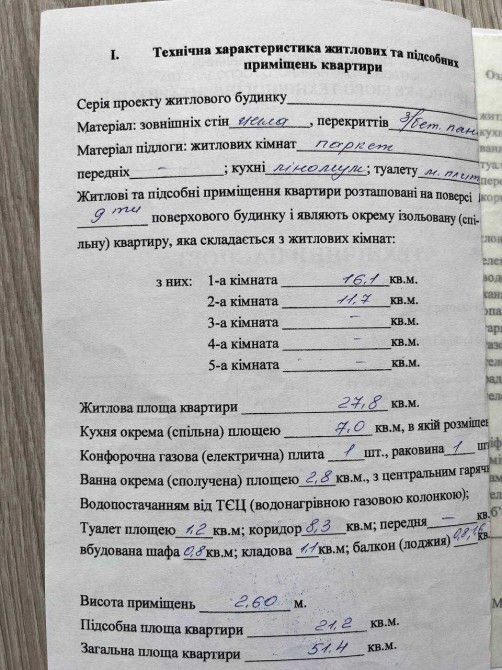 І. Технічна характеристика житлових та підсобних
приміщень квартири
Серія проекту житлового будинку
Матеріал: зовнішніх стін цегла, перекриттів з/бет. пан
Матеріал підлоги: житлових кімнат паркет
передніх - ; кухні лінолиум; туалету м. плит
Житлові та підсобні приміщення квартири розташовані на поверсі
9 ти поверхового будинку і являють окрему ізольовану (спі-
льну) квартиру, яка складається з житлових кімнат:
з них: 1-а кімната 16,1 кв.м.
2-а кімната 11,7 кв.м.
3-а кімната - кв.м.
4-а кімната - кв.м.
5-а кімната - кв.м.
Житлова площа квартири 27,8 кв.м.
Кухня окрема (спільна) площею 7,0 кв.м, в якій розміщен
Конфорочна газова (електрична) плита 1 шт., раковина 1 шт
Ванна окрема (сполучена) площею 2,8 кв.м., з центральним гаряч
Водопостачанням від ТЕЦ (водонагрівною газовою колонкою);
Туалет площею 1,2 кв.м; коридор 8,3 кв.м; передня - кв.
вбудована шафа 0,8 кв.м; кладова 1,1 кв.м; балкон (лоджия) 0,8; кв.
Висота приміщень 2,60 м.
Підсобна площа квартири 21,2 кв.м.
Загальна площа квартири 51.4 кв.м.